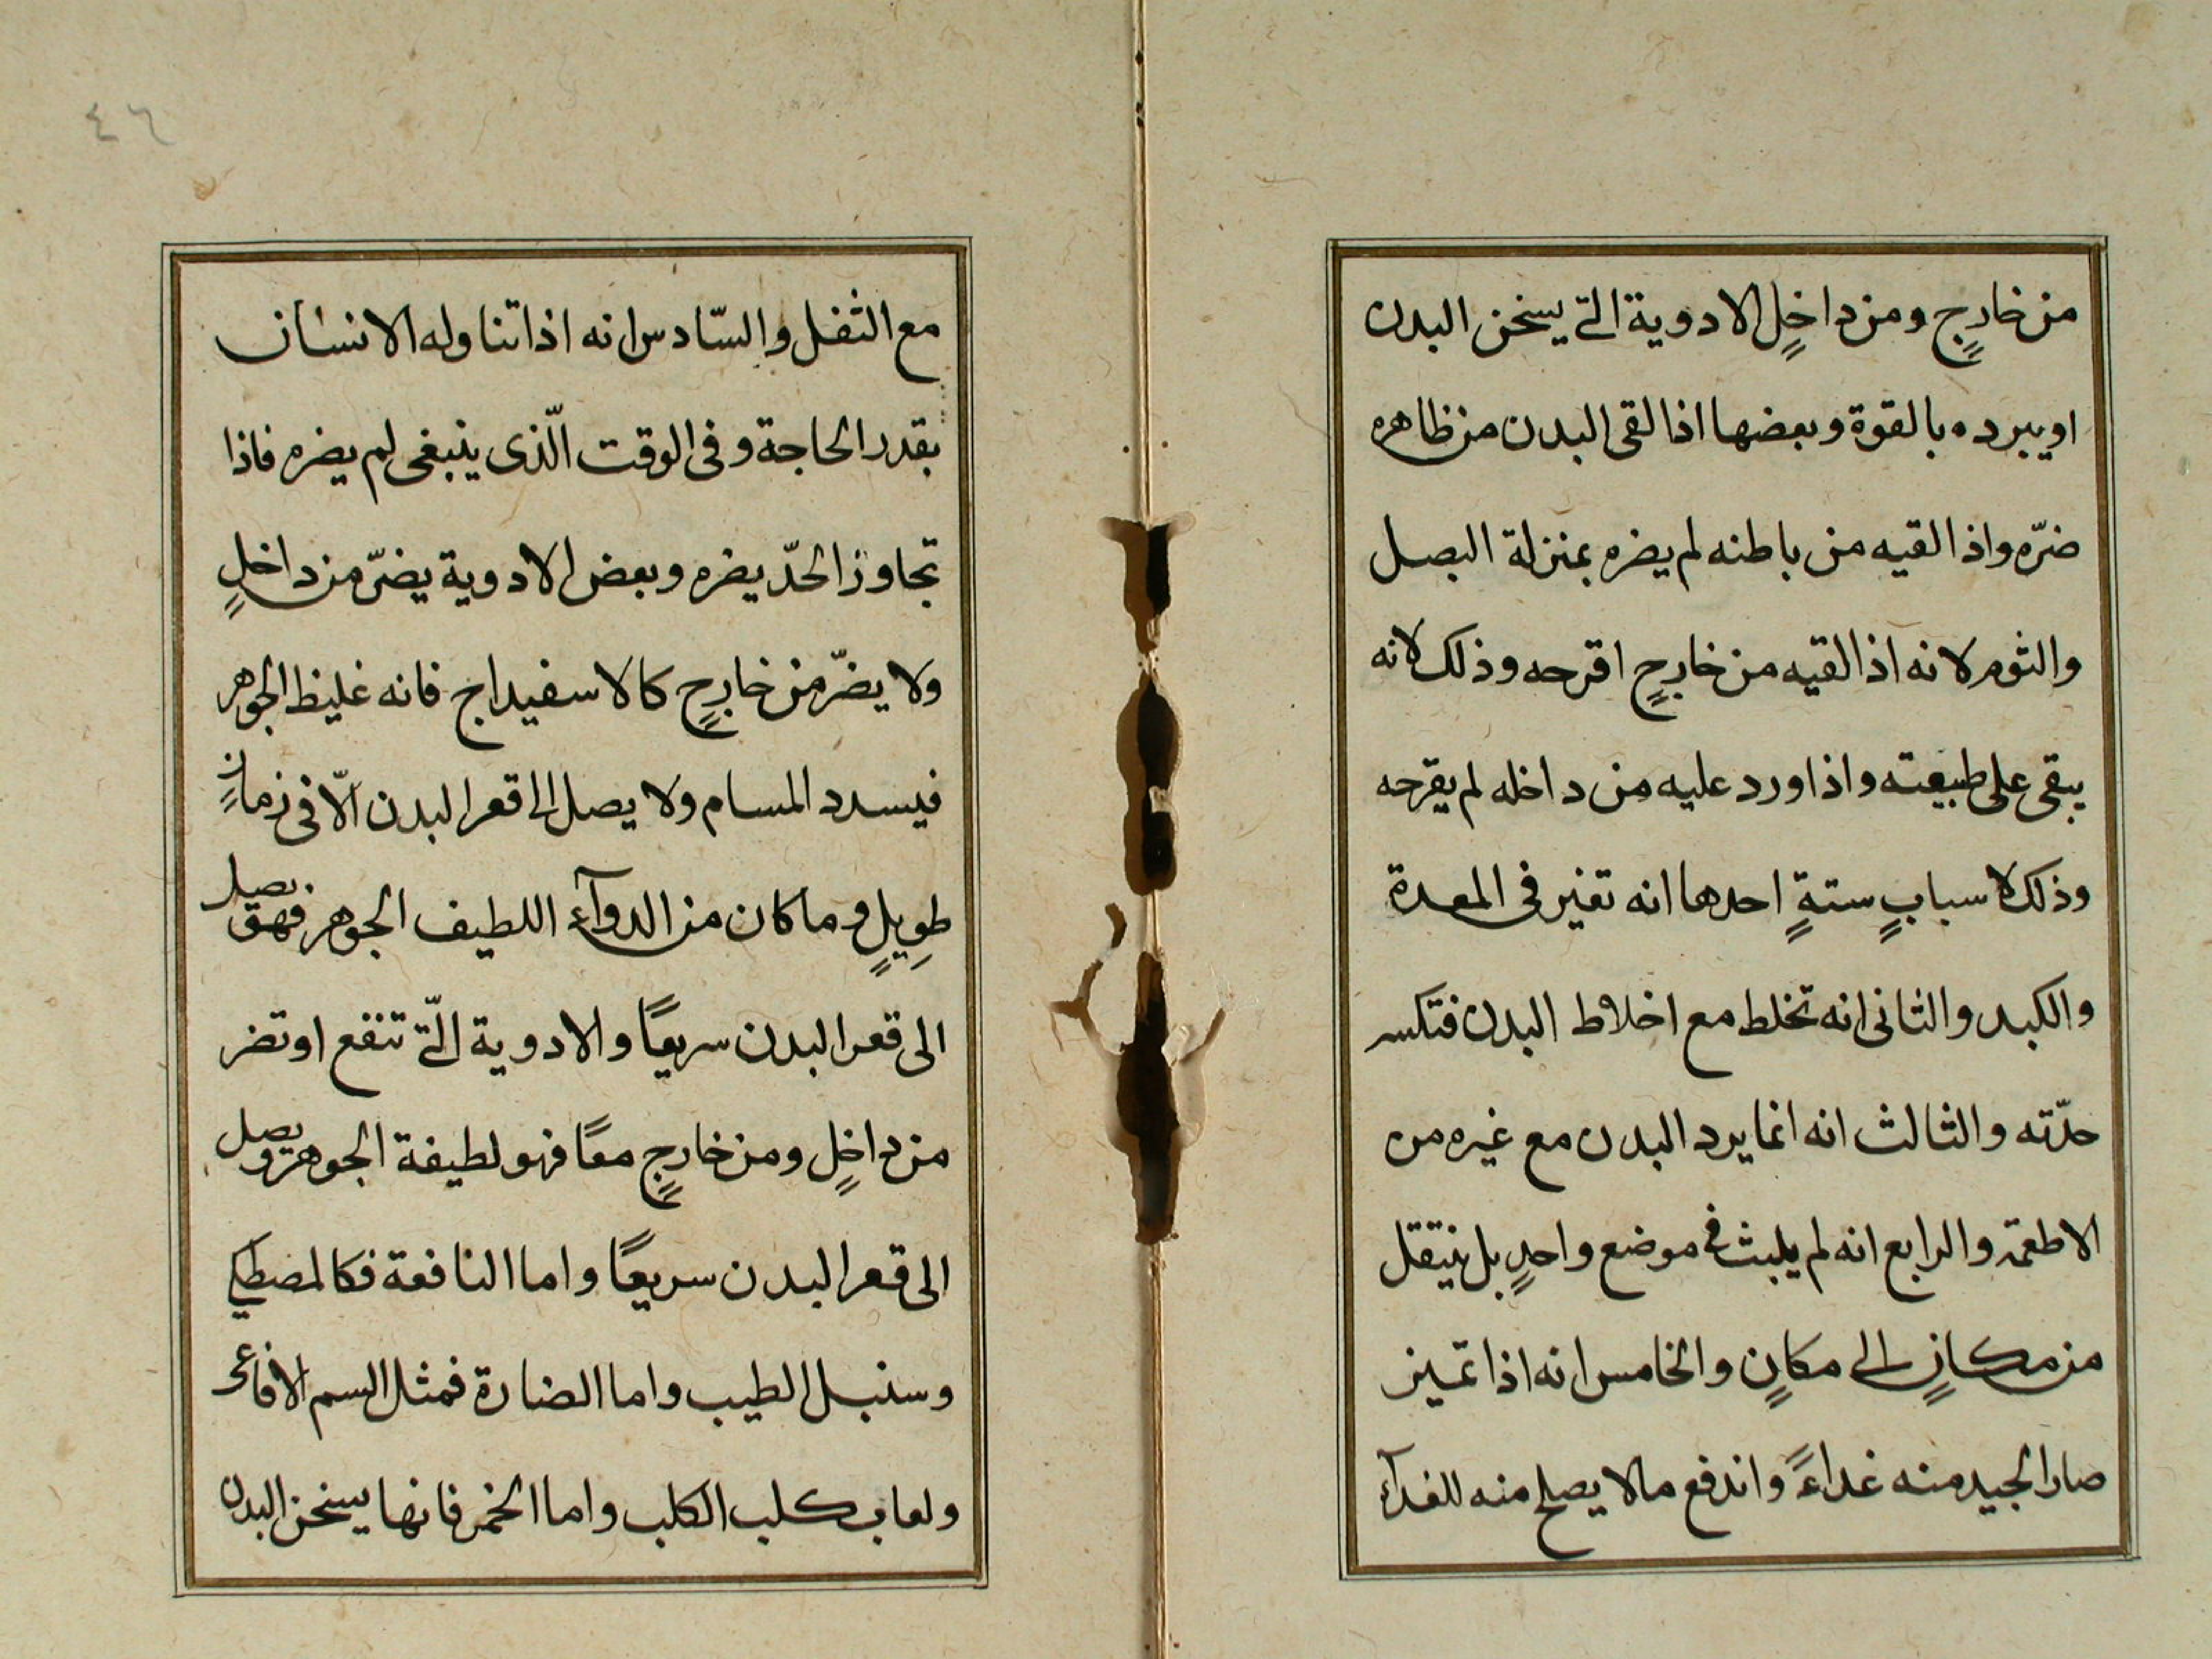 من خارجٍ ومن داخلٍ الادوية التى يسخن البدن
او يبرده بالقوة وبعضها اذا لقى البدن من ظاهره
ضرّه واذا لقيه من باطنه لم يضره بمنزلة البصل
والثوم لانه اذا لقيه من خارجٍ اقرحه وذلك لانه
يبقى على طبيعته واذا ورد عليه من داخله لم يقرحه
وذلك لاسبابٍ ستةٍ احدها انه تغير فى المعدة
والكبد والثانى انه تخلط مع اخلاط البدن فتكسر
حدّته والثالث انه انما يرد البدن مع غيره من
الاطعمة والرابع انه لم يلبث فى موضع واحدٍ بل ينتقل
من مكانٍ الى مكانٍ والخامس انه اذا تميز
صار الجيد منه غداءً واندفع ما لا يصلح منه للغدآء
٤٦
مع الثفل والسّادس انه اذا تناوله الانسان
بقدر الحاجة وفى الوقت الّذى ينبغى لم يضره فاذا
تجاوز الحدّ يضره وبعض الادوية يضرّ من داخلٍ
ولا يضرّ من خارجٍ كالاسفيداج فانه غليظ الجوهر
فيسدد المسام ولا يصل الى قعر البدن الّا فى زمانٍ
طويلٍ وما كان من الدوآء اللطيف الجوهر فهو يصل
الى قعر البدن سريعًا والادوية الّتى تنفع او تضر
من داخلٍ ومن خارجٍ معًا فهو لطيفة الجوهر ويصل
الى قعر البدن سريعًا واما النافعة فكالمصطكى
وسنبل الطيب واما الضارة فمثل السم الافاعى
ولعاب كلب الكلب واما الخمر فانها يسخن البدن